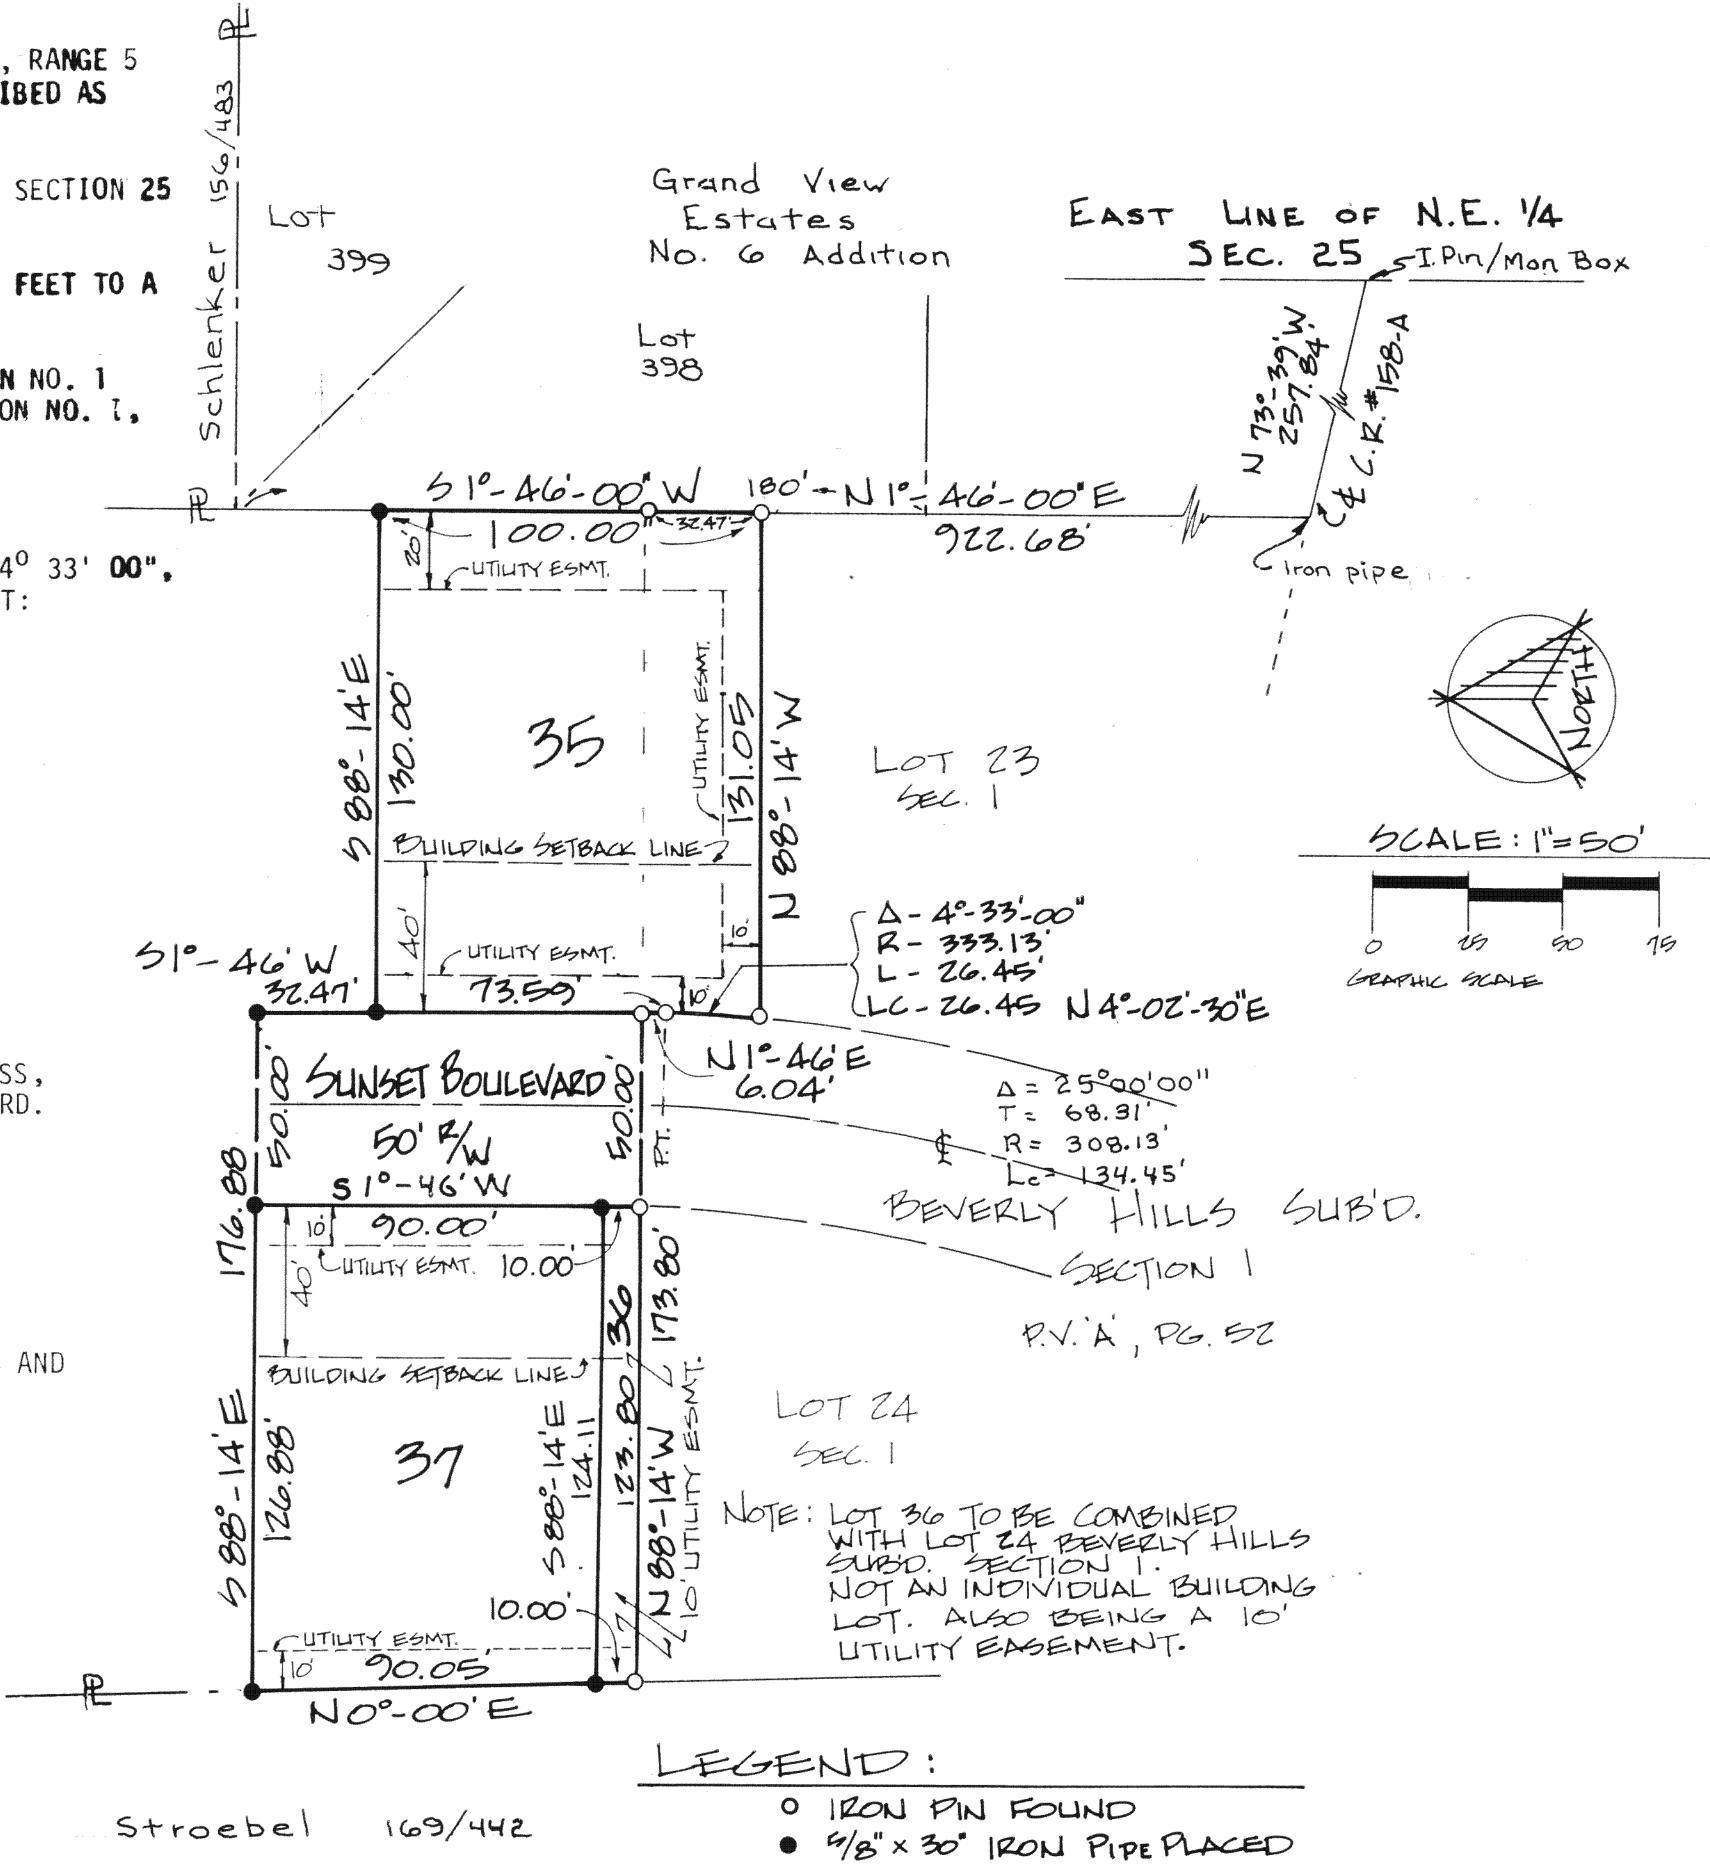 , RANGE 5
IBED AS
SECTION 25
FEET TO A
N NO. 1
ON NO. 1,
4° 33' 00",
T:
SS,
RD.
AND
PL
Schlenker 156/483
Lot
399
Grand View
Estates
No. 6 Addition
Lot
398
EAST LINE OF N.E. 1/4
SEC. 25
I.Pin/Mon Box
N 73°-39' W
257.84'
℄ C.R.#158-A
PL
S 1°-46'-00" W
180'
N 1°-46'-00" E
100.00'
32.47'
922.68'
Iron pipe
20'
UTILITY ESMT.
NORTH
S 88°-14' E
130.00'
35
UTILITY ESMT.
131.05
N 88°-14' W
LOT 23
SEC. 1
SCALE: 1"=50'
0 25 50 75
GRAPHIC SCALE
BUILDING SETBACK LINE
40'
UTILITY ESMT.
10'
10'
Δ - 4°-33'-00"
R - 333.13'
L - 26.45'
LC - 26.45 N 4°-02'-30" E
S 1°-46' W
32.47'
73.59'
N 1°-46' E
6.04'
50.00'
SUNSET BOULEVARD
50' R/W
50.00'
P.T.
Δ = 25°00'00"
T = 68.31'
℄ R = 308.13'
Lc = 134.45'
176.88
S 1°-46' W
90.00'
10'
UTILITY ESMT.
10.00'
40'
173.80'
BEVERLY HILLS SUB'D.
SECTION 1
P.V. 'A', PG. 52
BUILDING SETBACK LINE
36
S 88°-14' E
126.88'
37
S 88°-14' E
124.11
123.80
N 88°-14' W
10' UTILITY ESMT.
LOT 24
SEC. 1
NOTE: LOT 36 TO BE COMBINED
WITH LOT 24 BEVERLY HILLS
SUB'D. SECTION 1.
NOT AN INDIVIDUAL BUILDING
LOT. ALSO BEING A 10'
UTILITY EASEMENT.
10.00'
UTILITY ESMT.
10'
90.05'
PL
N 0°-00' E
LEGEND:
IRON PIN FOUND
5/8" x 30" IRON PIPE PLACED
Stroebel 169/442